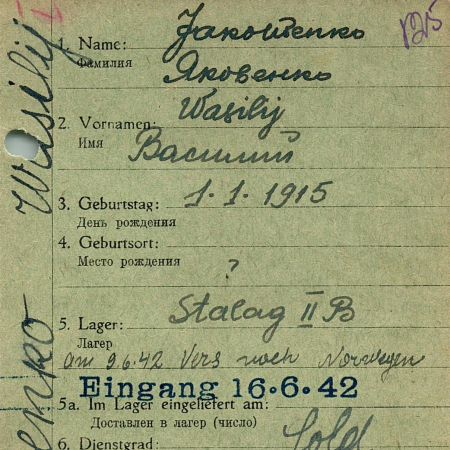 125
1. Name: Jakowenko
Фамилия Яковенко
Wasilij
2. Vornamen:
Имя Василий
3. Geburtstag: 1.1.1915
День рождения
4. Geburtsort:
Место рождения ?
5. Lager: Stalag II B
Лагер
am 9.6.42 Vers nach Norwegen
Eingang 16.6.42
5a. Im Lager eingeliefert am:
Доставлен в лагер (число)
6. Dienstgrad: Sold
Wasilij
enko